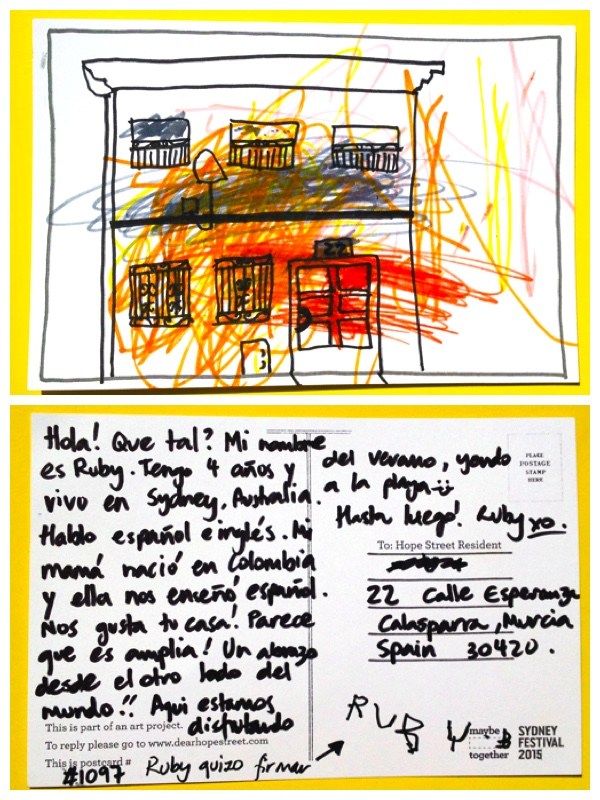 22
Hola! Que tal? Mi nombre
es Ruby. Tengo 4 años y
vivo en Sydney, Australia.
Hablo español e inglés. Mi
mamá nació en Colombia
y ella nos enceñó español.
Nos gusta tu casa! Parece
que es amplia! Un abrazo
desde el otro lado del
mundo!! Aqui estamos
disfrutando
This is part of an art project.
To reply please go to www.dearhopestreet.com
This is postcard #
#1097
Ruby quizo firmar
del verano, yendo
a la playa
Hasta luego! Ruby xo.
PLACE
POSTAGE
STAMP
HERE
To: Hope Street Resident
22 Calle Esperanza
Calasparra, Murcia
Spain 30420.
RUB Y
maybe
together
SYDNEY
FESTIVAL
2015